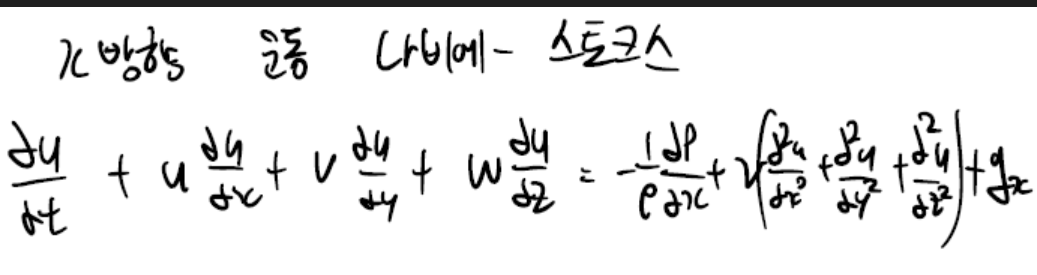 x방향 운동 나비에-스토크스
∂u/∂t + u ∂u/∂x + v ∂u/∂y + w ∂u/∂z = -1/ρ ∂P/∂x + ν(∂²u/∂x² + ∂²u/∂y² + ∂²u/∂z²) + gₓ